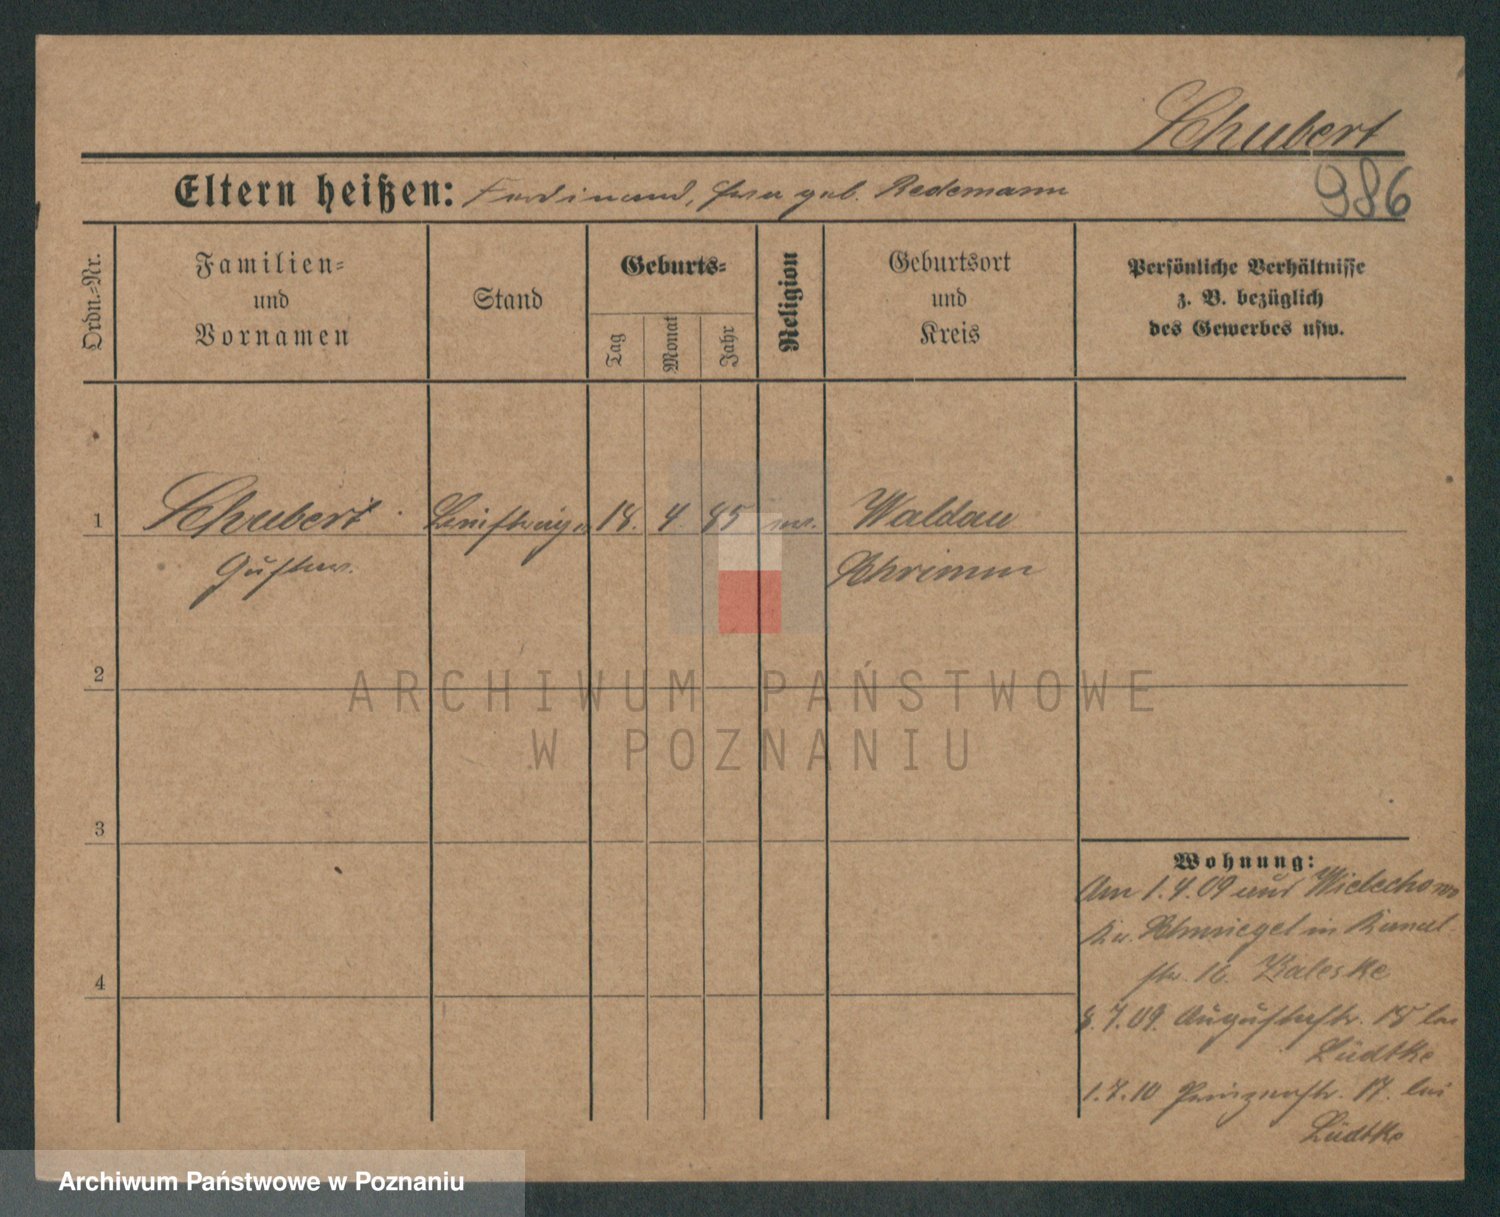 Schubert
986
Eltern heißen: Ferdinand, geb. Redemann
Ordn.=Nr.
Familien=
und
Vornamen
Stand
Geburts=
Tag
Monat
Jahr
Religion
Geburtsort
und
Kreis
Persönliche Verhältnisse
z. B. bezüglich
des Gewerbes usw.
1 Schubert 18. 4 85 Waldau
Gustav. Schrimm
2
3
4
Wohnung:
Am 1.4.09 aus Wielechowo
Kr. Schmiegel in Kanal
str. 16. Zaleske
8.7.09. Augustastr. 18 bei
Lüdtke
1.7.10 Prinzenstr. 17. bei
Lüdtke
ARCHIWUM PAŃSTWOWE
W POZNANIU
Archiwum Państwowe w Poznaniu